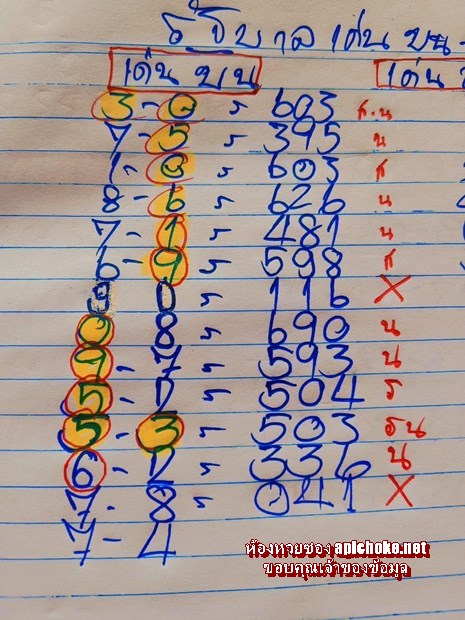 รัฐบาล เด่น บน -
เด่น บน เด่น
3 - 0 ร 603 ส.น
7 - 5 ร 395 น
1 - 0 ร 603 ส
8 - 6 ร 626 น
7 - 1 ร 481 น
6 - 9 ร 598 ส
0 0 ร 116 X
0 8 ร 690 น
9 - 7 ร 593 น
5 - 7 ร 504 ร
5 - 3 ร 503 รน
6 - ร 336 น
7 - 8 ร 041 X
7 - 4
ห้องหวยซอง apichoke.net
ขอบคุณเจ้าของข้อมูล